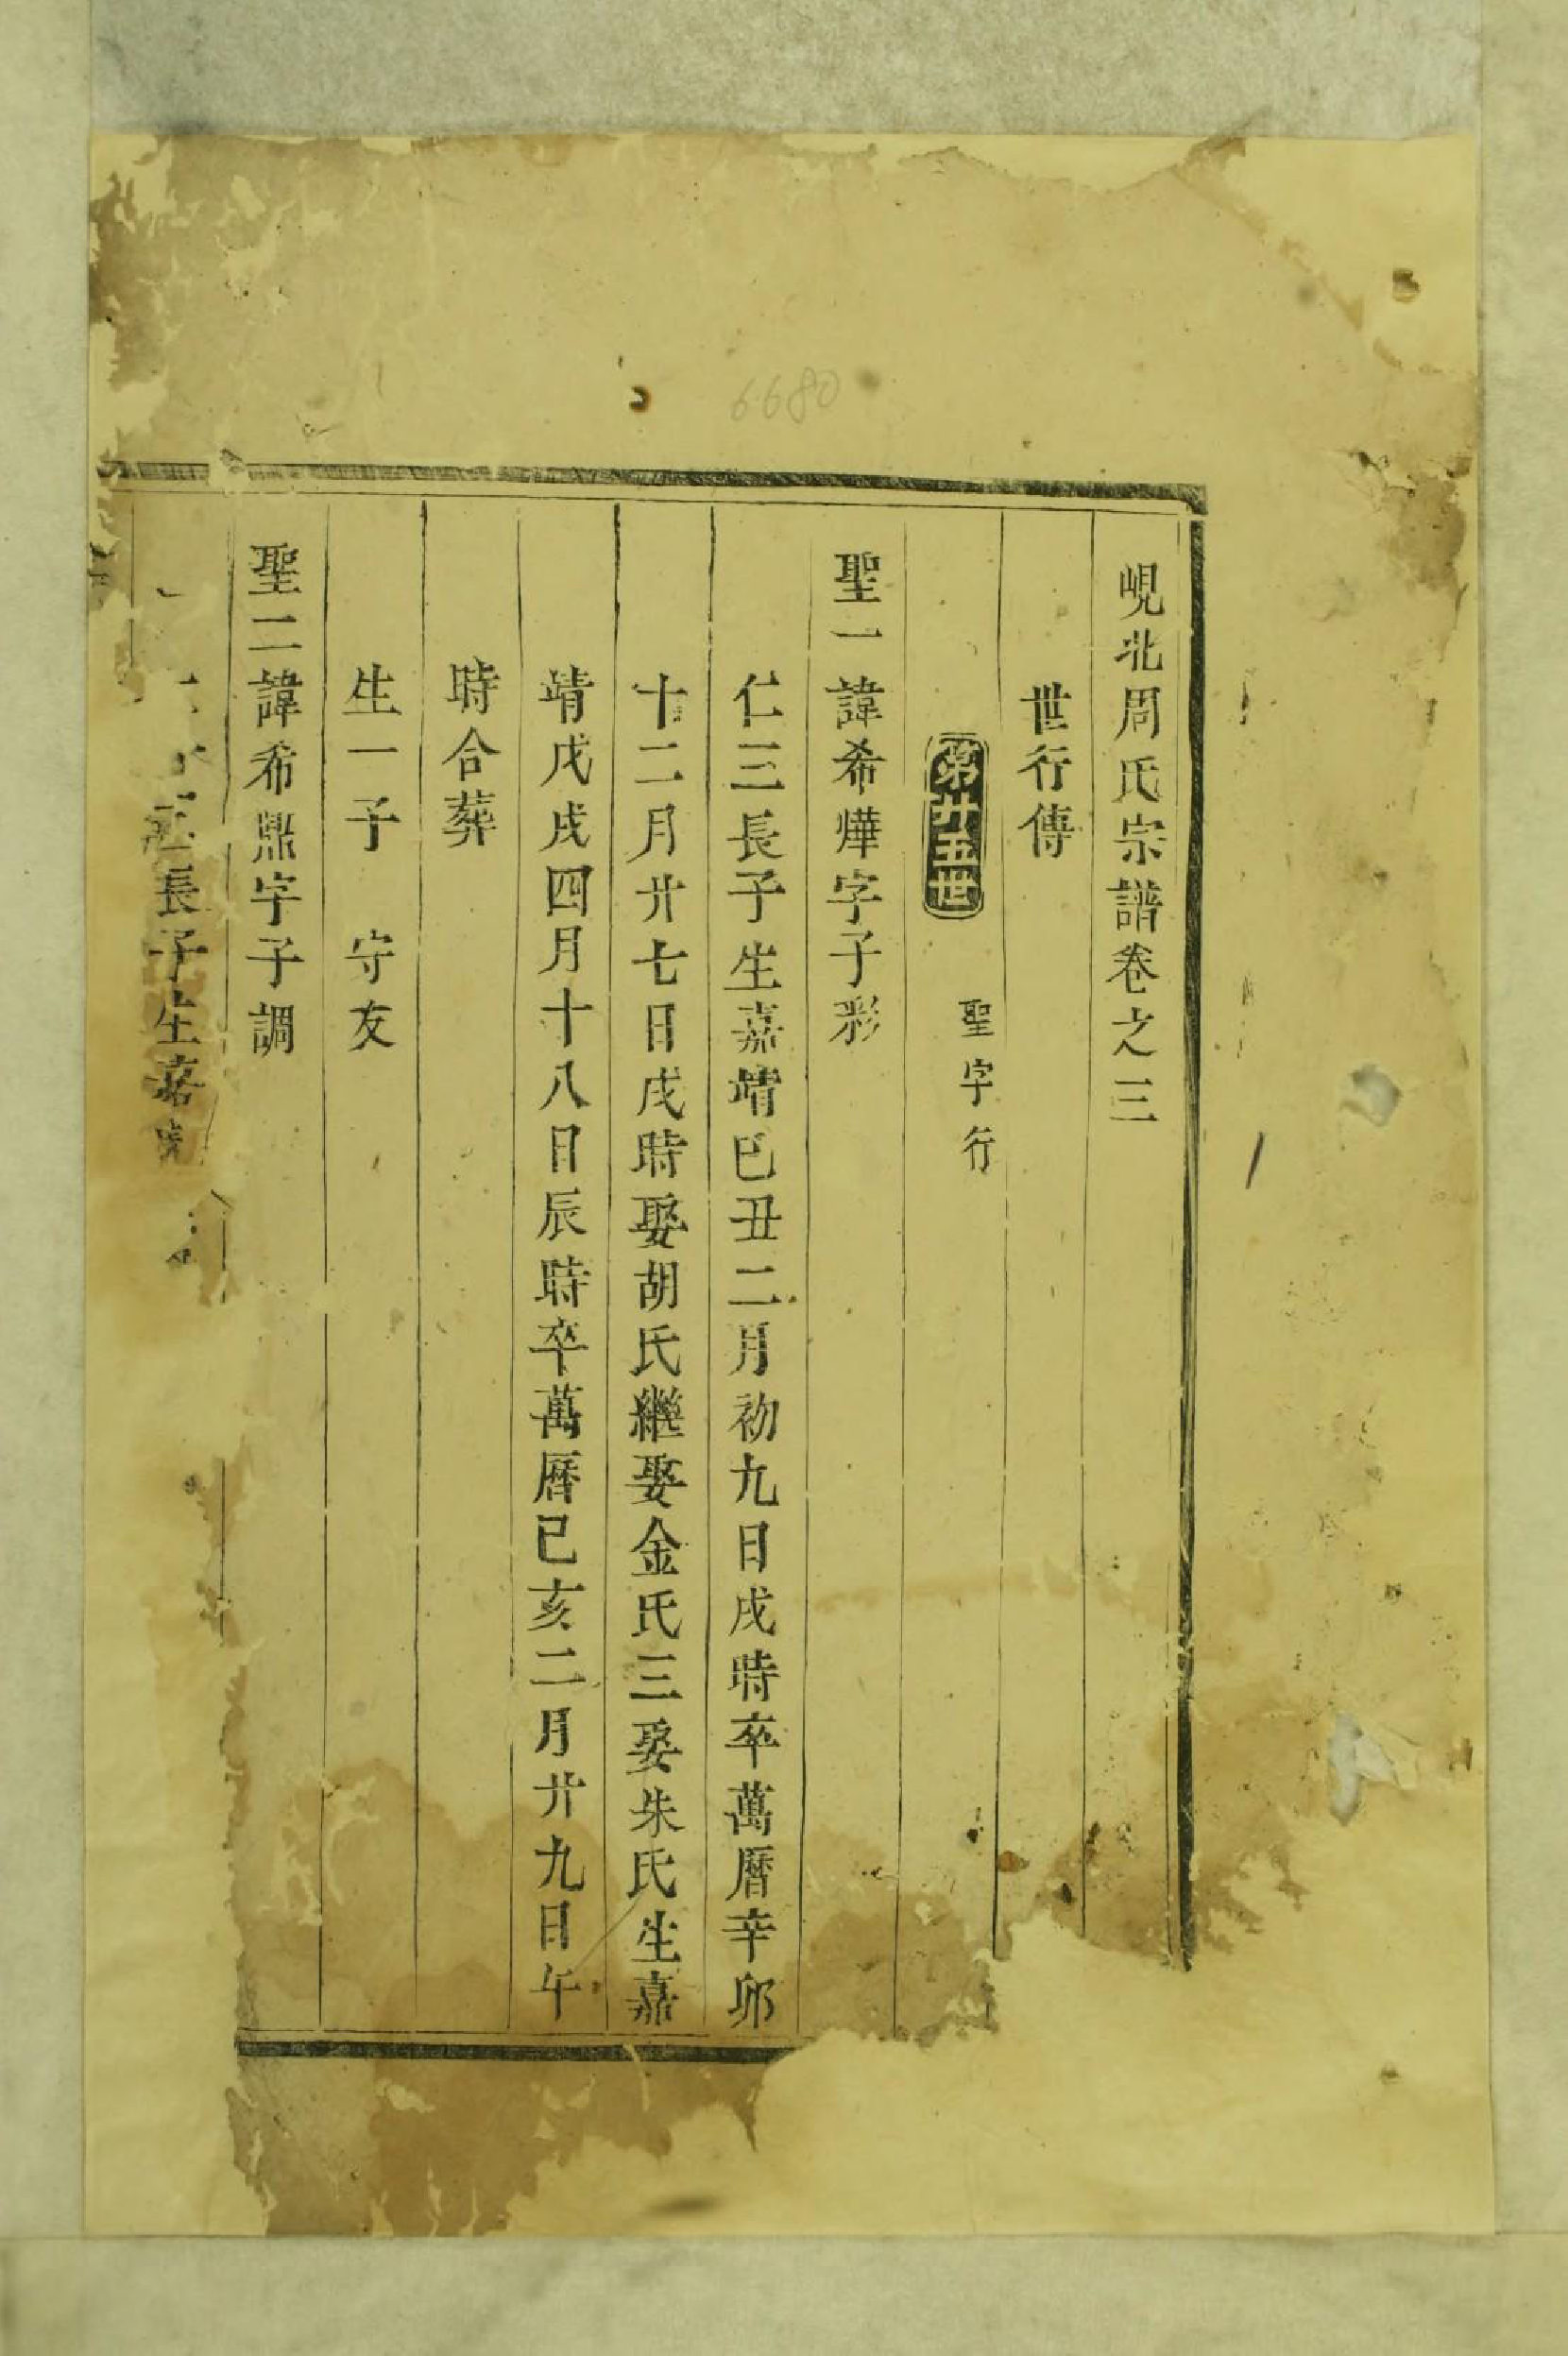 峴北周氏宗譜卷之三
世行傳
第廿五世 聖字行
聖一諱希燁字子彩
仁三長子生嘉靖已丑二月初九日戌時卒萬曆辛卯
十二月廿七日戌時娶胡氏繼娶金氏三娶朱氏生嘉
靖戊戌四月十八日辰時卒萬曆已亥二月廿九日午
時合葬
生一子 守友
聖二諱希鼎字子調
長子生嘉
6680